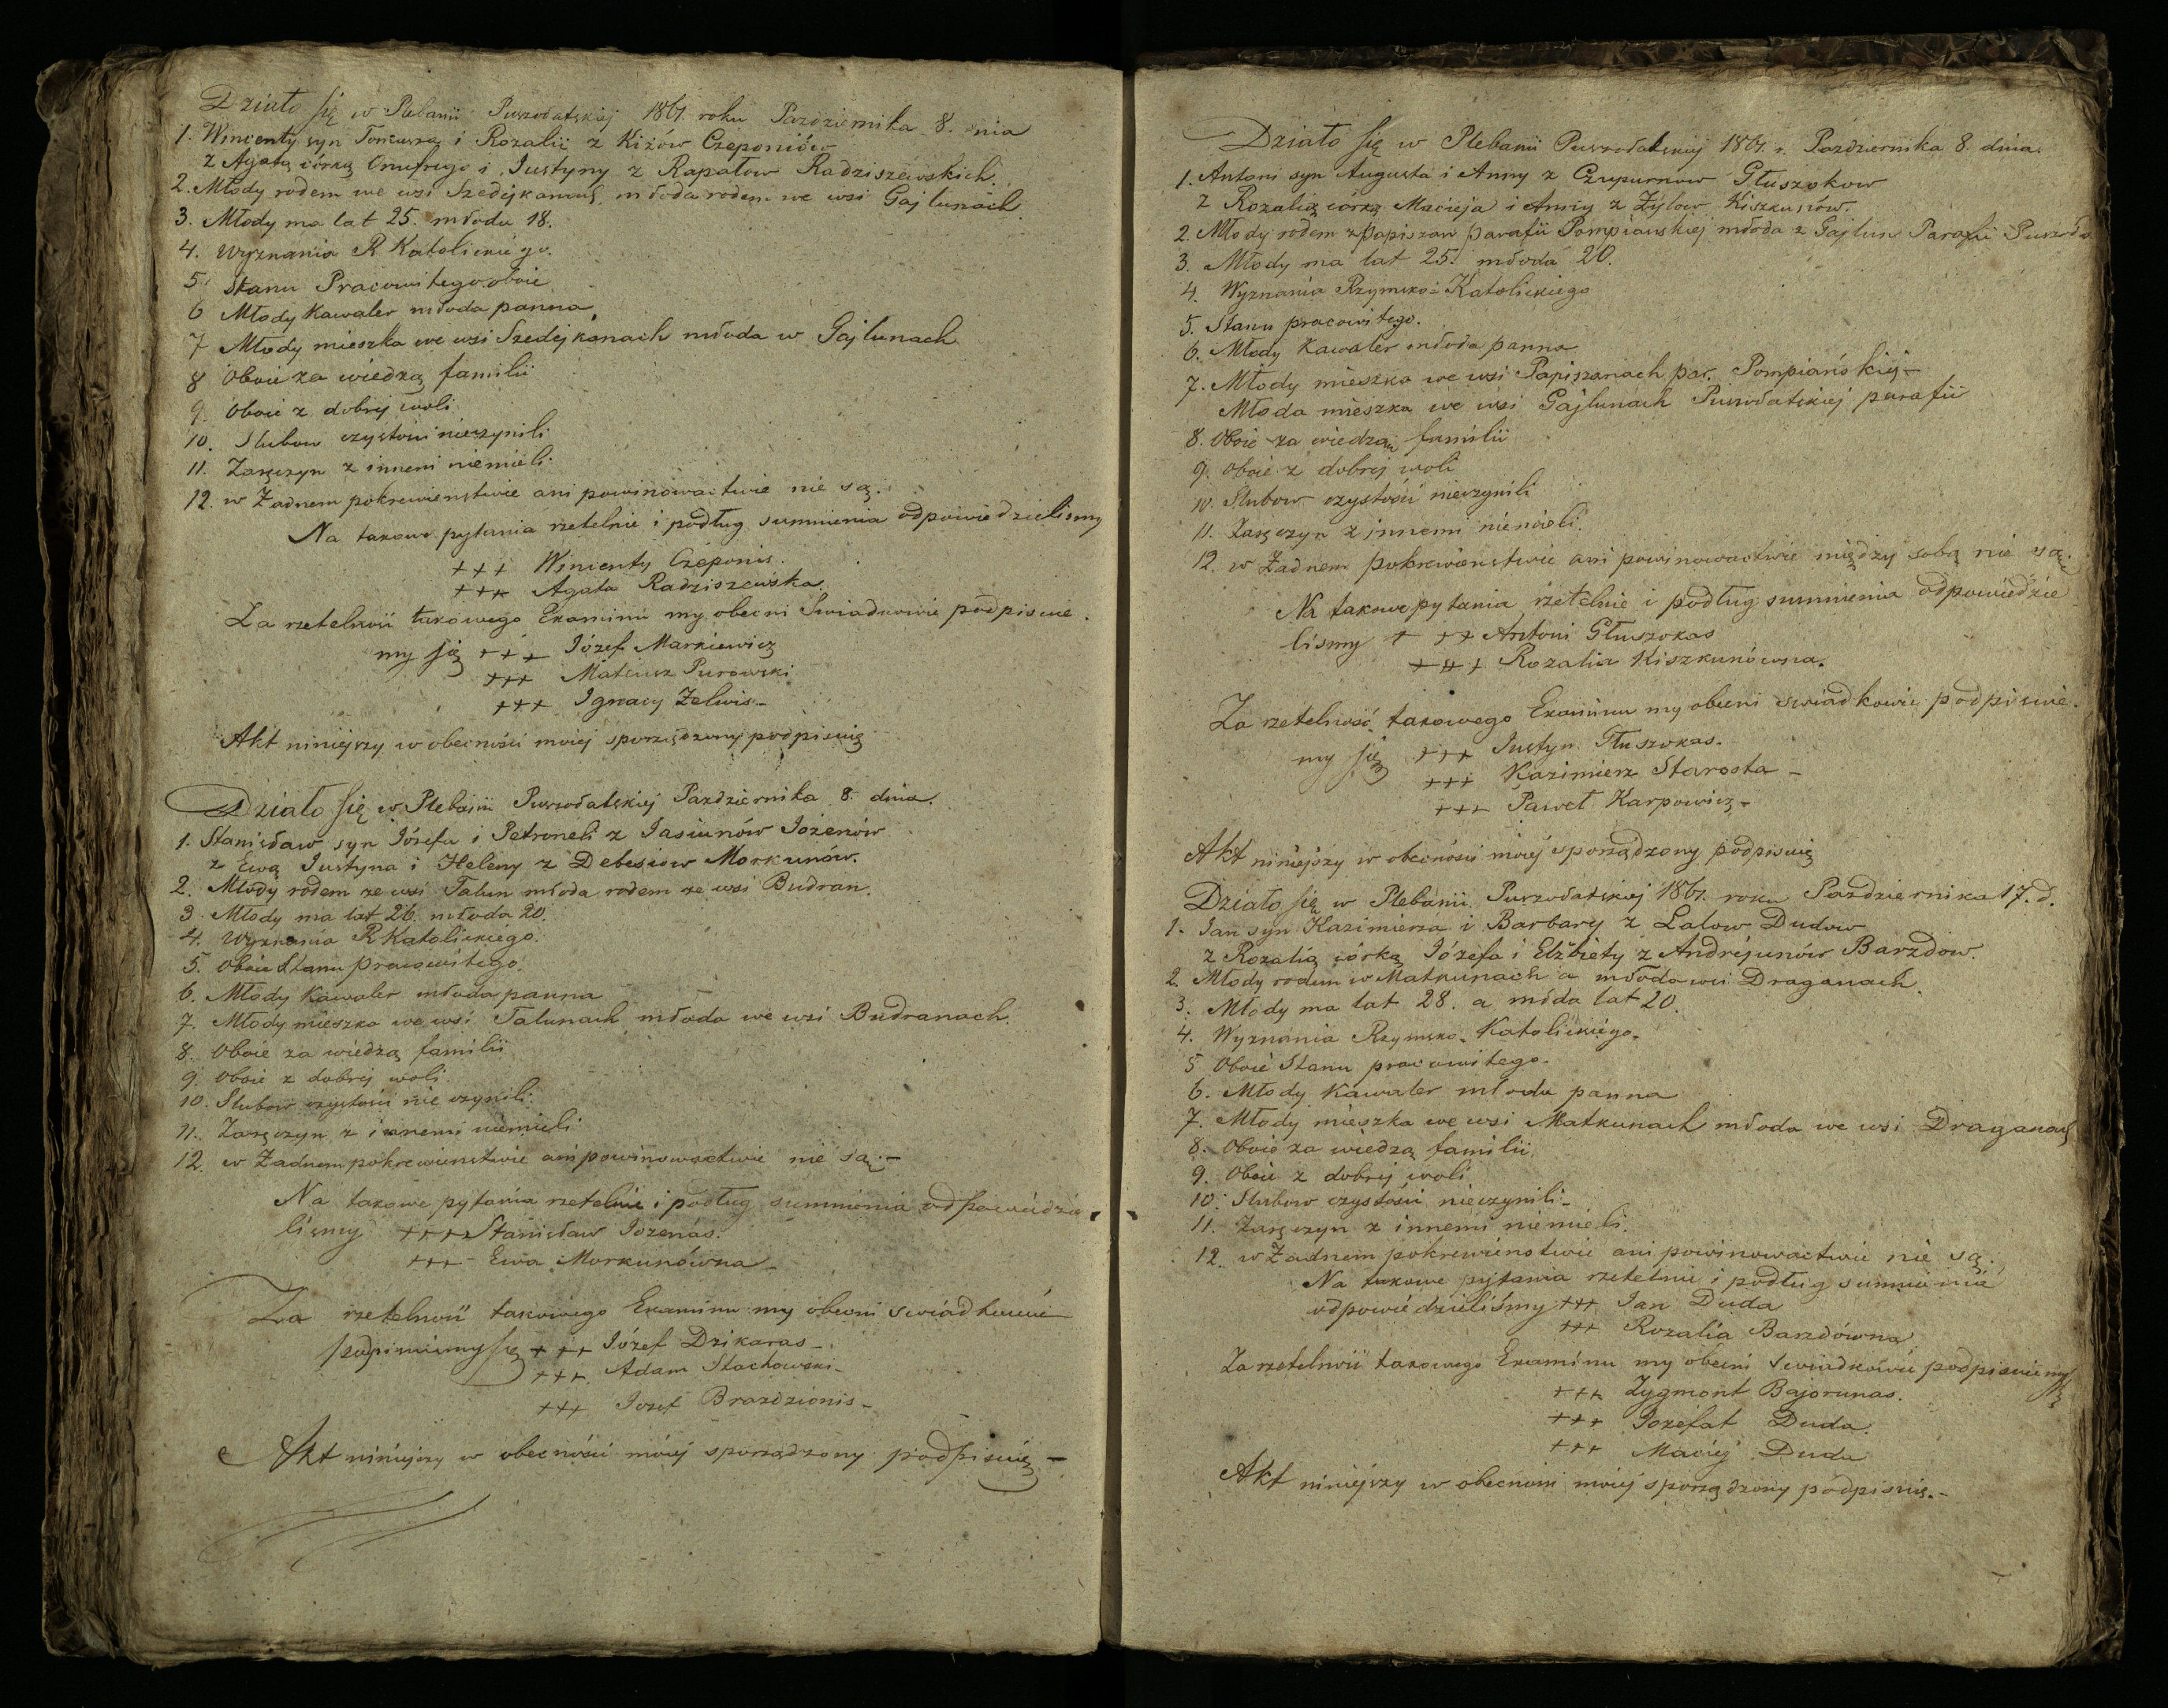 Działo się w Plebanii Puszołatskiej 1861. roku Pazdziernika 8. dnia
1. Wincenty syn Tomasza i Rozalii z Kizów Czeponiów
z Agatą córką Onufrego i Justyny z Rapałow Radziszewskich.
2. Młody rodem we wsi Szedejkanach, młoda rodem we wsi Gajlunach
3. Młody ma lat 25. młoda 18.
4. Wyznania R Katolickiego.
5. Stanu Pracowitego oboie
6 Młody Kawaler młoda panna
7 Młody mieszka we wsi Szedejkanach młoda w Gajlunach
8 Oboie za wiedzą familii
9. Oboie z dobrej woli
10. Slubow czystości nieczynili
11. Zaręczyn z innemi niemieli
12. w Żadnem pokrewienstwie ani powinowactwie nie są.
Na takowe pytania rzetelnie i podług sumnienia odpowiedzielismy
+++ Wincenty Czeponis.
+++ Agata Radziszewska
Za rzetelność takowego Examinu my obecni Swiadkowie podpisuie.
my się +++ Józef Markiewicz
+++ Mateusz Purowski
+++ Ignacy Zelwis
Akt niniejszy w obecności moiej sporządzony podpisuię
Działo się w Plebanii Puszołatskiej Pazdziernika 8. dnia.
1. Stanisław syn Józefa i Petroneli z Jasiunów Jozenów
z Ewą Justyna i Heleny z Debesiow Morkunów.
2. Młody rodem ze wsi Talun młoda rodem ze wsi Budran.
3. Młody ma lat 26. młoda 20.
4. Wyznania R Katolickiego.
5. Oboie Stanu pracowitego.
6. Młody Kawaler młoda panna
7. Młody mieszka we wsi Talunach młoda we wsi Budranach.
8. Oboie za wiedzą familii
9. Oboie z dobrej woli.
10. Slubow czystości nie czynili.
11. Zaręczyn z innemi niemieli
12. w Żadnem pokrewienstwie ani powinowactwie nie są.-
Na takowe pytania rzetelnie i podług sumnienia odpowiedzie
lismy +++ Stanisław Jozenas.
+++ Ewa Morkunówna
Za rzetelność takowego Examinu my obecni swiadkowie
podpisuiemy się +++ Józef Dzikaras
+++ Adam Stachowski
+++ Jozef Brazdzionis
Akt niniejszy w obecności moiej sporządzony podpisuię
Działo się w Plebanii Puszołatskiej 1861. r. Pazdziernika 8. dnia.
1. Antoni syn Augusta i Anny z Czupurnow Głuszokow
z Rozalią córką Macieja i Anny z Żylow Kiszkunów.
2. Młody rodem z Papiszan parafii Pompianskiej młoda z Gajlun Parafii
3. Młody ma lat 25. młoda 20.
4. Wyznania Rzymsko-Katolickiego
5. Stanu pracowitego.
6. Młody Kawaler młoda panna
7. Młody mieszka we wsi Papiszanach par. Pompiańskiej
Młoda mieszka we wsi Gajlunach Puszołatskiej parafii
8. Oboie za wiedzą familii
9. Oboie z dobrej woli
10. Slubow czystości nieczynili
11. Zaręczyn z innemi niemieli.
12. w Żadnem pokrewienstwie ani powinowactwie między sobą nie są.
Na takowe pytania rzetelnie i podług sumnienia odpowiedzie
lismy +++ Antoni Głuszokas
+++ Rozalia Kiszkunówna.
Za rzetelność takowego Examinu my obecni swiadkowie podpisuie.
my się +++ Justyn Głuszokas.
+++ Kazimierz Starosta
+++ Paweł Karpowicz
Akt niniejszy w obecności moiej sporządzony podpisuię
Działo się w Plebanii Puszołatskiej 1861. roku Pazdziernika 17. d.
1. Jan syn Kazimierza i Barbary z Lalow Dudow
z Rozalią córką Józefa i Elżbiety z Andrejunów Barzdow.
2. Młody rodem w Matkunach a młoda wsi Draganach.
3. Młody ma lat 28. a młda lat 20.
4. Wyznania Rzymsko-Katolickiego.
5 Oboie Stanu pracowitego.
6. Młody Kawaler młoda panna
7. Młody mieszka we wsi Matkunach młoda we wsi Draganach
8. Oboie za wiedzą familii.
9. Oboie z dobrej woli
10. Slubow czystości nieczynili
11. Zaręczyn z innemi niemieli.
12. w Żadnem pokrewienstwie ani powinowactwie nie są.
Na takowe pytania rzetelnie i podług sumnienia
odpowiedzieliśmy +++ Jan Duda
+++ Rozalia Barzdówna
Za rzetelność takowego Examinu my obecni swiadkówie podpisuiemy się
+++ Zygmont Bajorunas.
+++ Jozefat Duda.
+++ Maciej Duda
Akt niniejszy w obecności moiej sporządzony podpisuię.-